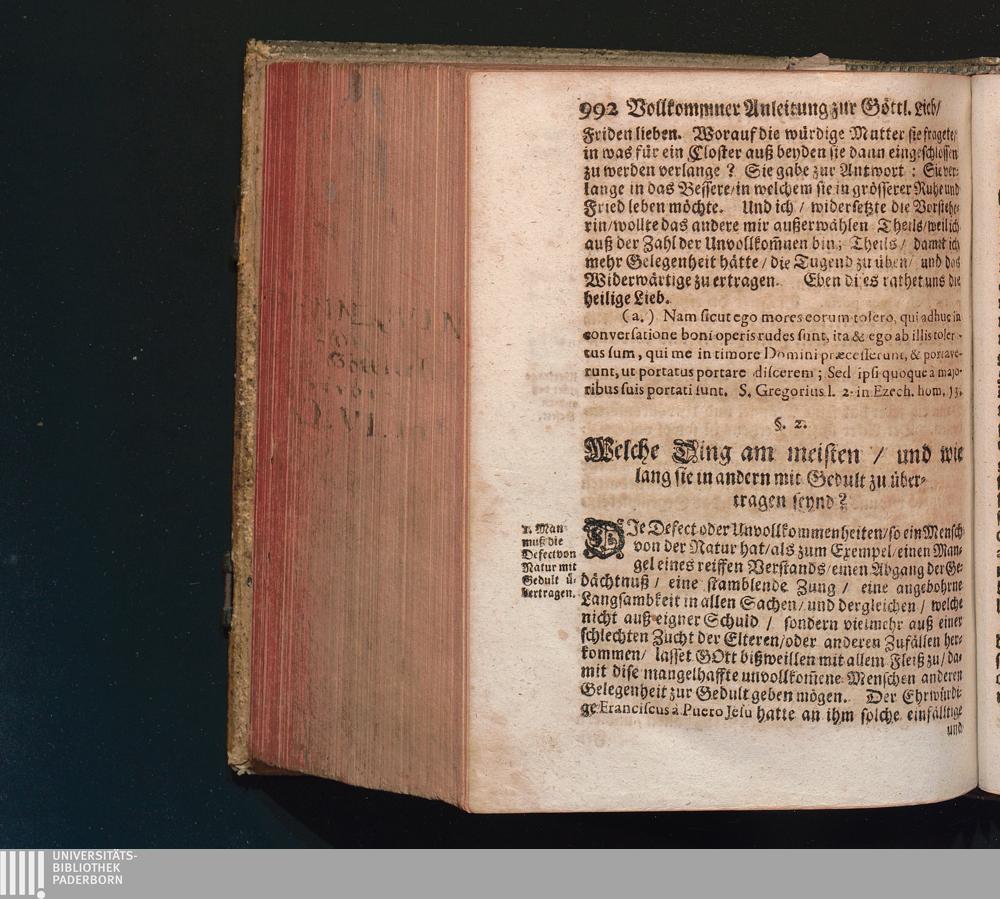 992 Vollkommner Anleitung zur Göttl. Lieb/
Friden lieben. Worauf die würdige Mutter sie fragete/
in was für ein Closter auß beyden sie dann eingeschlossen
zu werden verlange? Sie gabe zur Antwort: Sie ver-
lange in das Bessere/in welchem sie in grösserer Ruhe und
Fried leben möchte. Und ich / widersetzte die Vorstehe-
rin/wollte das andere mir außerwählen Theils/weil ich
auß der Zahl der Unvollkom̄nen bin; Theils/ damit ich
mehr Gelegenheit hätte/die Tugend zu üben/ und das
Widerwärtige zu ertragen. Eben dises rathet uns die
heilige Lieb.
(a.) Nam sicut ego mores eorum tolero, qui adhuc in
conversatione boni operis rudes sunt, ita & ego ab illis toler-
tus sum, qui me in timore Domini præcesserunt, & portave-
runt, ut portatus portare discerem; Sed ipsi quoque à majo-
ribus suis portati sunt. S. Gregorius l. 2. in Ezech. hom. 15.
§. 2.
Welche Ding am meisten / und wie
lang sie in andern mit Gedult zu über-
tragen seynd?
1. Man
muß die
Defect von
Natur mit
Gedult ü-
bertragen.
DIe Defect oder Unvollkommenheiten/so ein Mensch
von der Natur hat/als zum Exempel/einen Man-
gel eines reiffen Verstands/einen Abgang der Ge-
dächtnuß / eine stamblende Zung / eine angebohrne
Langsambkeit in allen Sachen/und dergleichen / welche
nicht auß eigner Schuld / sondern vielmehr auß einer
schlechten Zucht der Elteren/oder anderen Zufällen her-
kommen/ lasset GOtt bißweillen mit allem Fleiß zu/da-
mit dise mangelhaffte unvollkom̄ene Menschen anderen
Gelegenheit zur Gedult geben mögen. Der Ehrwürdi-
ge Franciscus à Puero Jesu hatte an ihm solche einfälltige
und
UNIVERSITÄTS-
BIBLIOTHEK
PADERBORN